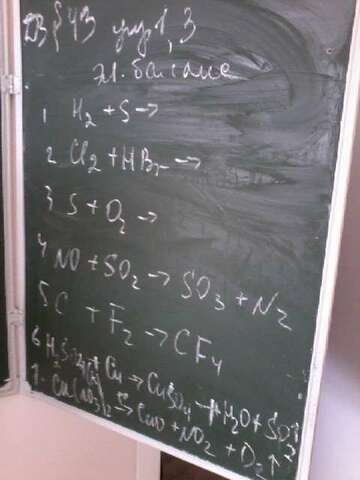 ДЗ §43 упр 1,3
эл. баланс
1 H₂ + S →
2 Cl₂ + HBr →
3 S + O₂ →
4 NO + SO₂ → SO₃ + N₂
5 C + F₂ → CF₄
6 H₂SO₄(к) + Cu → CuSO₄ + H₂O + SO₂↑
7. Cu(NO₃)₂ → CuO + NO₂ + O₂↑